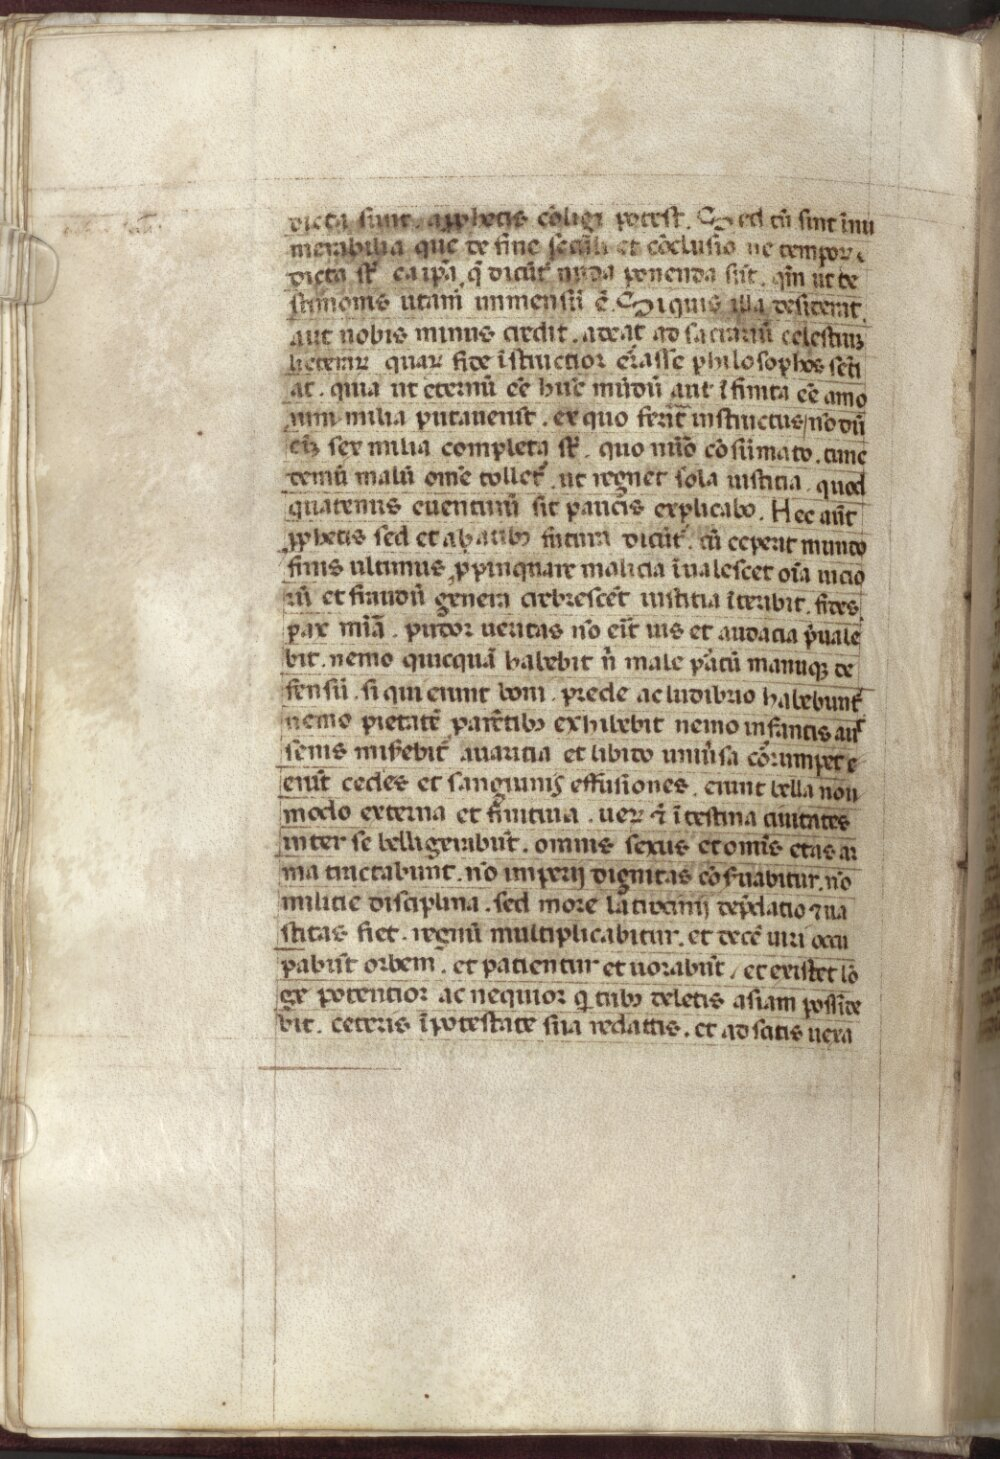 dicta sunt a ꝓphetis cõligi potest. Sed cũ sint ĩnu
merabilia que de fine seculi et cõclusio ne tempor
dicta sũt ea ipã q̃ dicũt nuda ponenda sũt. qm̃ ut te
stimoniis utam̃ inmensũ ẽ. Siquis illa desiderat.
aut nobis minus credit. adeat ad sacrariũ celestiuꝫ
litterar quar fide ĩstructior erasse philosophos sẽti
at. quia ut eternũ eẽ hũc mũdũ aut ĩfinita eẽ anno
rum milia putauerũt. ex quo fcũt instructus nõdũ
eĩ sex milia completa sũt. quo nũo cõsũmato. tunc
demũ malũ om̃e tolletᷣ. ut regnet sola iusticia. quod
quatenus euenturũ sit paucis explicabo. Hec aũt
ꝓphetis sed et ab uatibꝰ futura dicũtᷣ. cũ ceperit mundo
finis ultimus ꝓpinquare malicia ĩualescet oĩa uicio
rũ et fraudũ genera crebrescẽt iusticia ĩteribit. fides
pax mĩa. pudor ueritas nõ erũt uis et audacia p̃uale
bit. nemo quicquã habebit ñ male partũ manuqꝫ de
fensũ. si qui erunt boni. prede ac ludibrio habebuntᷣ
nemo pietatẽ parẽtibꝰ exhibebit nemo infantis aut
senis miserebitᷣ auaricia et libido uniũsa cõrumpet e
erũt cedes et sanguinis effusiones. erunt bella non
modo externa et finitima. ueꝝ ⁊ ĩtestina ciuitates
inter se belligerabũt. omnis sexus et om̃is etas ar
ma tractabunt. nõ imperij dignitas cõseruabitur. nõ
milicie disciplina. sed more latrocinij dep̃datio ⁊ ua
stitas fiet. regnũ multiplicabitur. et decẽ uiri occu
pabũt orbem. et pacientur et uorabũt / et existet lõ
ge potentior ac nequior q̃ tribꝰ deletis asiam posside
bit. ceteris ĩ potestate sua redattis. et ad satis uera